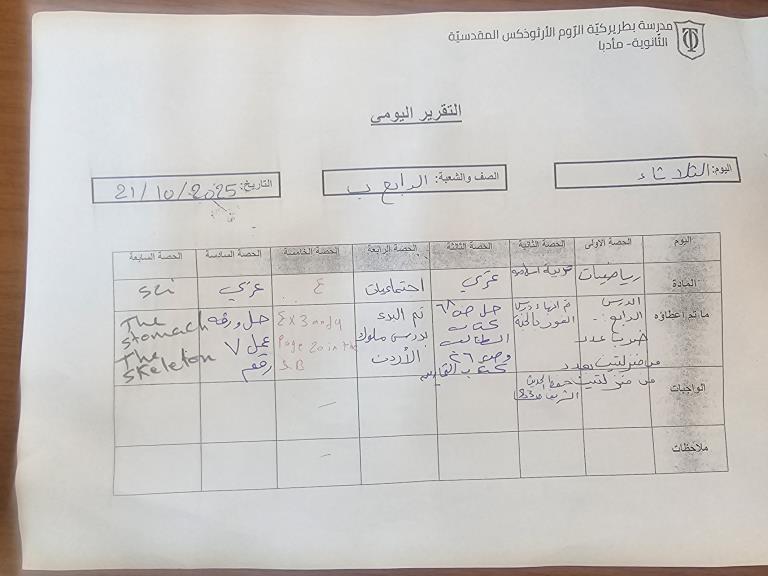 مدرسة بطريركيّة الرّوم الأرثوذكس المقدسيّة
الثّانوية- مأدبا
التقرير اليومي
اليوم: الثلاثاء
الصف والشعبة: الرابع ب
التاريخ: 21/10/2025
اليوم
الحصة الاولى
الحصة الثانية
الحصة الثالثة
الحصة الرابعة
الحصة الخامسة
الحصة السادسة
الحصة السابعة
المادة
رياضيات
تربية اسلامية
عربي
اجتماعيات
E
عربي
sci
ما تم اعطاؤه
الدرس
الرابع:
ضرب عدد
من منزلتين بعدد
من منزلتين
تم انهاء درس
الفوز بالجنة
حل ص ٦٨
كتاب
الطالب
وص ٤٦
تم البدء
بدرس ملوك
الأردن
Ex 3 and 4
Page 20 in the
SB
حل ورقة
عمل ٧
رقم
The
stomach
The
skeleton
الواجبات
حفظ الحديث
الشريف
-
ملاحظات
-